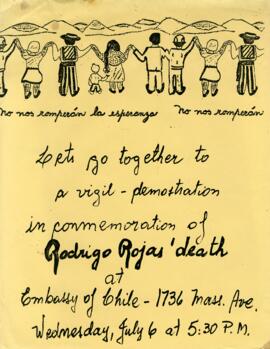 No nos romperán la esperanza No nos romperán
Let's go together to
a vigil - demostration
in conmemoration of
Rodrigo Rojas' death
at
Embassy of Chile - 1736 Mass. Ave.
Wednesday, July 6 at 5:30 P.M.